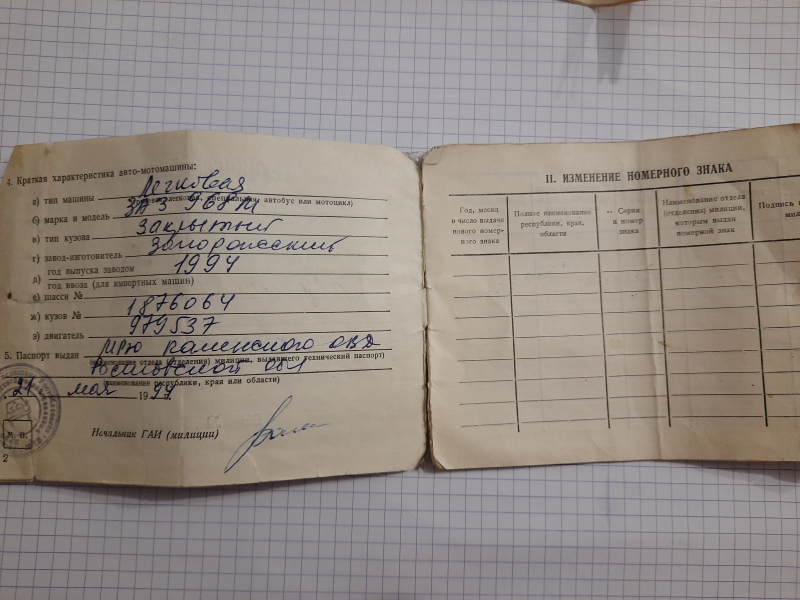 4. Краткая характеристика авто-мотомашины:
а) тип машины Легковая
(легковой, специальная, автобус или мотоцикл)
б) марка и модель ЗАЗ 968М
в) тип кузова закрытый
г) завод-изготовитель Запорожский
д) год выпуска заводом 1994
год ввоза (для импортных машин)
е) шасси №
ж) кузов № 1876064
з) двигатель 979537
5. Паспорт выдан МРЮ Каменского ОВД
(наименование отдела (отделения) милиции, выдавшего технический паспорт)
обл
(наименование республики, края или области)
21 мая 1994
М. П.
Начальник ГАИ (милиции)
2
II. ИЗМЕНЕНИЕ НОМЕРНОГО ЗНАКА
Год, месяц и число выдачи нового номерного знака
Полное наименование республики, края, области
Серия и номер знака
Наименование отдела (отделения) милиции, которым выдан номерной знак
Подпись